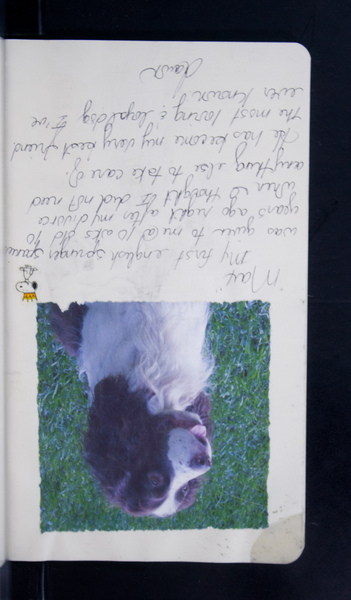 "Max"
My first english springer spaniel
was given to me @ 10 wks old 10
years ago right after my divorce
when I thought I did not need
anything else to take care of.
He has become my very best friend
the most loving & loyal dog I've
ever known!